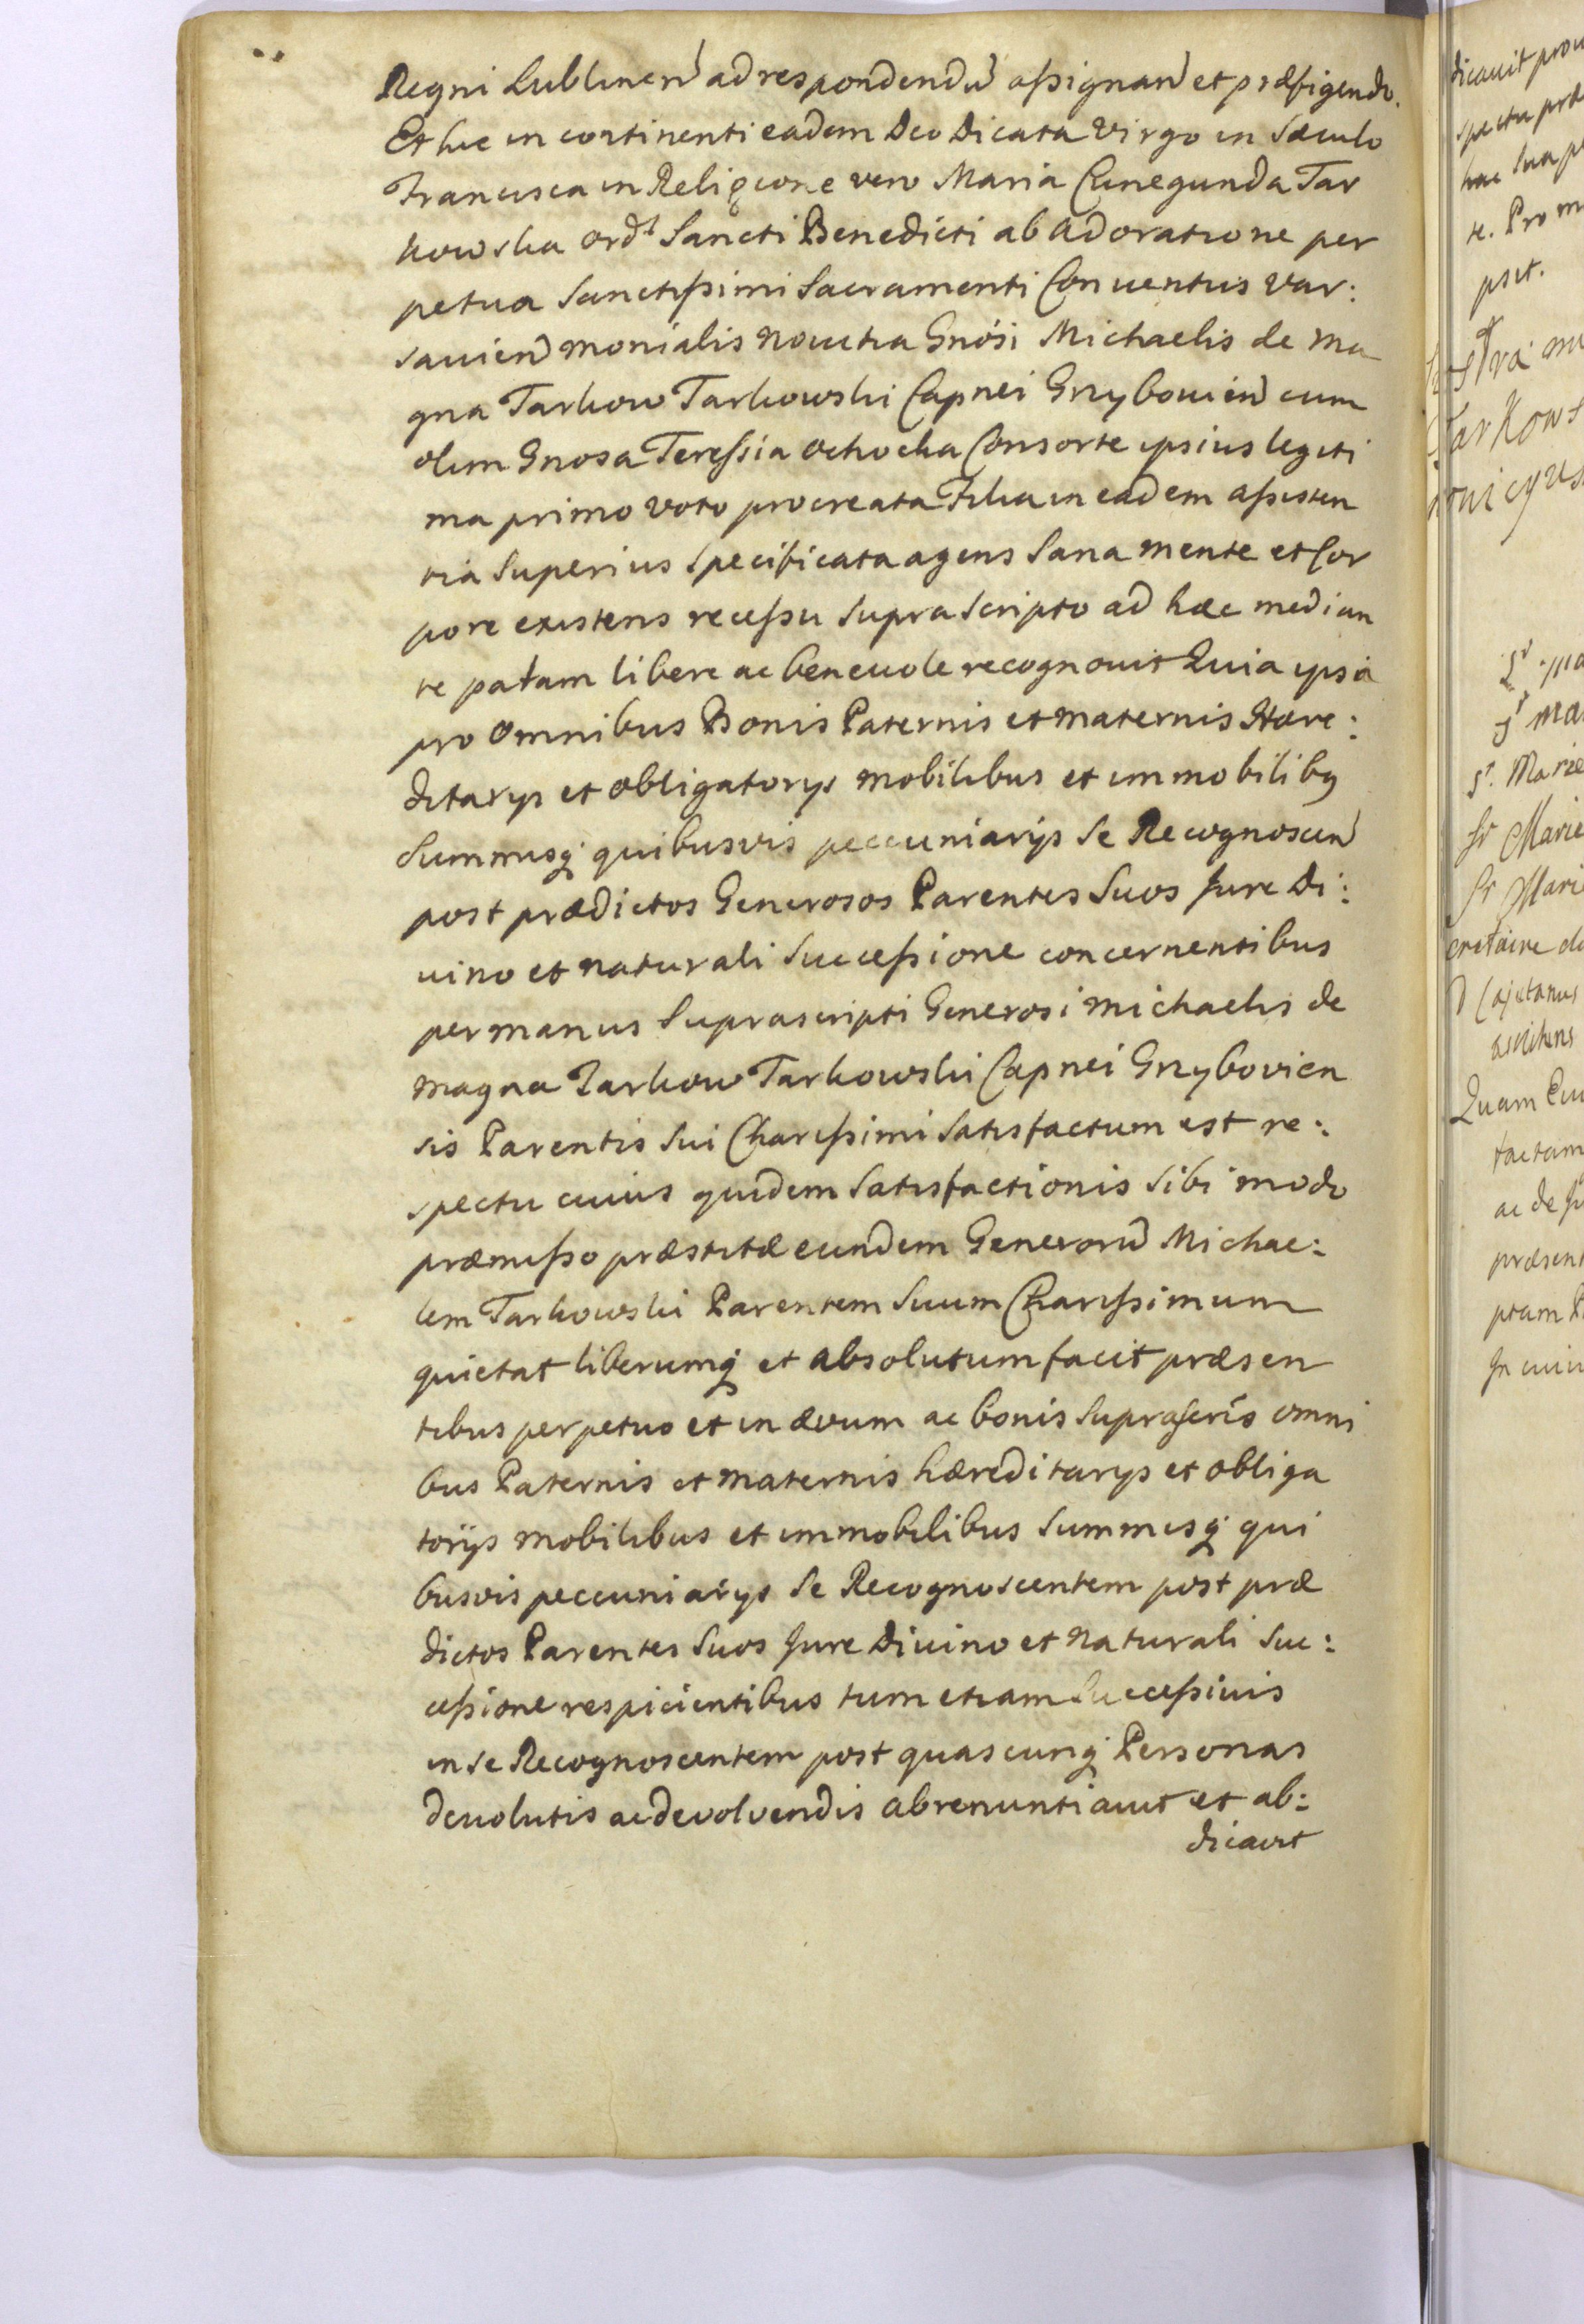 Regni Lublinen ad respondendu assignan et præfigendo.
Et hic in continenti eadem Deo Dicata Virgo in Sæculo
Francisca in Religione vero Maria Cunegunda Tar
kowska Ord: Sancti Benedicti ab Adoratione per
petua Sanctissimi Sacramenti Conventus Var:
savien Monialis Novitia Gnosi Michaelis de Ma
gna Tarkow Tarkowski Capnei Grzybovien cum
olim Gnosa Teressia Ochocka Consorte ipsius legiti
ma primo voto procreata Filia in eadem assisten
tia Superius Specificata agens Sana mente et Cor
pore existens recessu Suprascripto ad hæc median
te palam libere ac benevole recognovit Quia ipsa
pro Omnibus Bonis Paternis et Maternis Hære:
ditarys et Obligatorys Mobilibus et immobilibq
Summisq quibusvis peccuniarijs Se Recognoscen
post prædictos Generosos Parentes Suos Jure Di:
uino et Naturali Successione concernentibus
per manus Suprascripti Generosi Michaelis de
Magna Tarkow Tarkowski Capnei Grzybovien
sis Parentis Sui Charissimi Satisfactum est re:
spectu cuius quidem Satisfactionis Sibi modo
præmisso præstitæ eundem Generosu Michae:
lem Tarkowski Parentem Suum Charissimum
quietat liberumq et absolutum facit præsen
tibus perpetuo et in ævum ac bonis Suprascris omni
bus Paternis et Maternis hæreditarys et obliga
torijs Mobilibus et immobilibus Summisq qui
busvis peccuniarys Se Recognoscentem post præ
dictos Parentes Suos Jure Diuino et Naturali Suc:
cessione respicientibus tum etiam Successiuis
in se Recognoscentem post quascunq Personas
devolutis ac devolvendis abrenuntiavit et ab:
dicavit